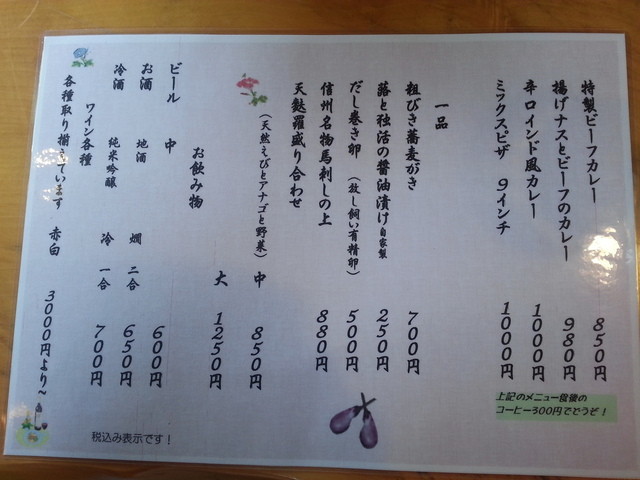 特製ビーフカレー 850円
揚げナスとビーフのカレー 980円
辛口インド風カレー 1000円
ミックスピザ 9インチ 1000円
上記のメニュー食後の
コーヒー300円でどうぞ!
一品
粗びき蕎麦がき 700円
蕗と独活の醤油漬け 自家製 250円
だし巻き卵 (放し飼い有精卵) 500円
信州名物馬刺しの上 880円
天麩羅盛り合わせ
(天然えびとアナゴと野菜) 中 850円
大 1250円
お飲み物
ビール 中 600円
お酒 地酒 燗 二合 650円
冷酒 純米吟醸 冷 一合 700円
ワイン各種
各種取り揃えています 赤白 3000円より~
税込み表示です!